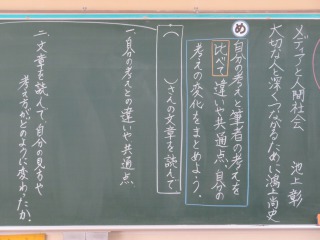 メディアと人間社会　池上 彰
大切な人と深くつながるために 鴻上尚史
め
自分の考えと筆者の考えを
比べて違いや共通点、自分の
考えの変化をまとめよう。
（　　）さんの文章を読んで
一、自分の考えとの違いや共通点
二、文章を読んで、自分の見方や
考え方がどのように変わったか。